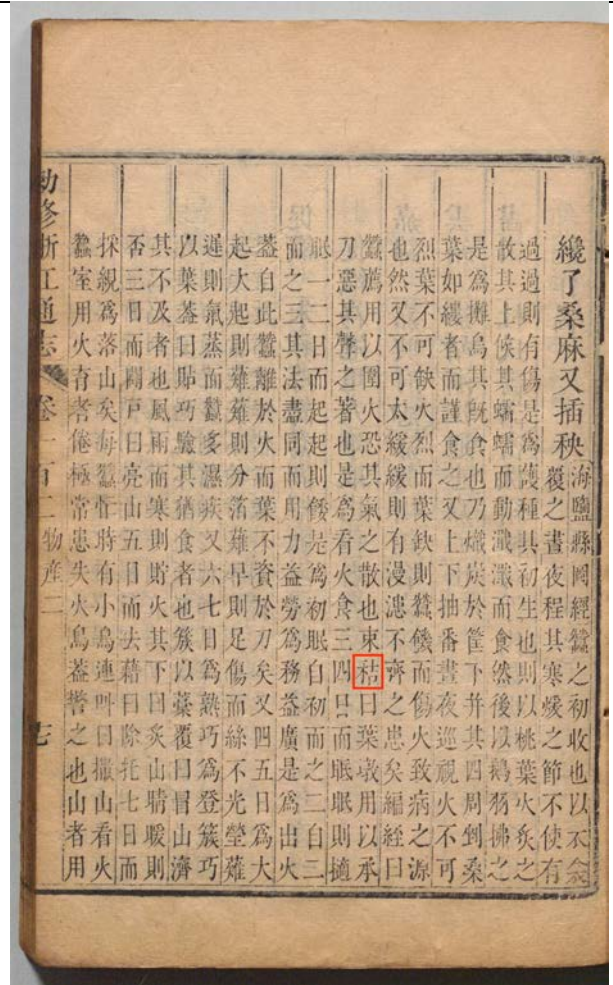 纔了桑麻又插秧
海鹽縣圖經蠶之初收也以衣衾
覆之晝夜程其寒煖之節不使有
過過則有傷是爲護種其初生也則以桃葉火炙之
散其上候其蠕蠕而動濈濈而食然後以鵝羽拂之
是爲攤烏其既食也乃熾炭於筐下并其四周剉桑
葉如縷者而謹食之又上下抽番晝夜巡視火不可
烈葉不可缺火烈而葉缺則蠶饑而傷火致病之源
也然又不可太緩緩則有漫漶不齊之患矣編經曰
蠶薦用以圍火恐其氣之散也束秸曰葉墩用以承
刀惡其聲之著也是爲看火食三四日而眠眠則擿
眠一二日而起起則餧是爲初眠自初而之二自二
而之三其法盡同而用力益勞爲務益廣是爲出火
葢自此蠶離於火而葉不資於刀矣又四五日爲大
起大起則薙薙則分箔薙早則足傷而絲不光瑩薙
遲則氣蒸而蠶多濕疾又六七日爲熟巧爲登簇巧
以葉葢曰貼巧驗其猶食者也簇以藁覆曰冒山濟
其不及者也風雨而寒則貯火其下曰炙山晴暖則
否三日而闢戸曰亮山五日而去藉曰除托七日而
採絸爲落山矣每蠶忙時有小鳥連呌曰撮山看火
蠶室用火育者倦極常患失火鳥葢警之也山者用
勅修浙江通志 卷一百二 物產二 十七